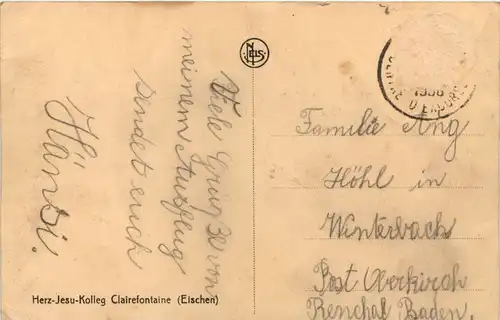 Viele Grüße von
meinem Ausflug
sendet euch
Hansi.
Familie Ang
Höhl in
Winterbach
Post Oberkirch
Renchtal Baden.
NELS
1936
Herz-Jesu-Kolleg Clairefontaine (Eischen)